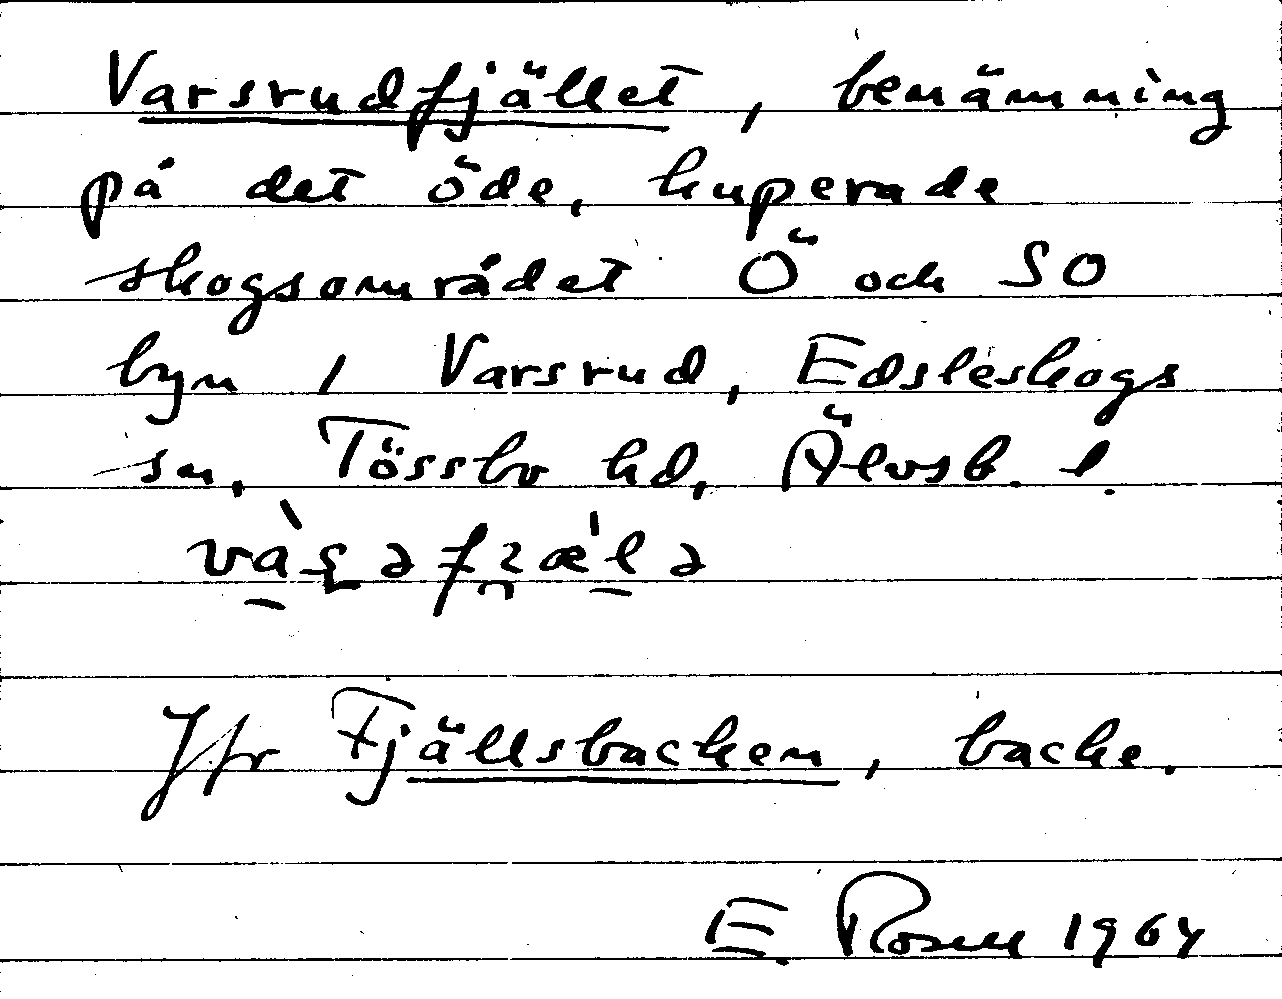 Varsrudfjället, benämning
på det öde, kuperade
skogsområdet Ö och SO
byn 1 Varsrud, Edsleskogs
sn, Tössbo hd, Älvsb. l.
Jfr Fjällsbacken, backe.
E. Rosell 1964